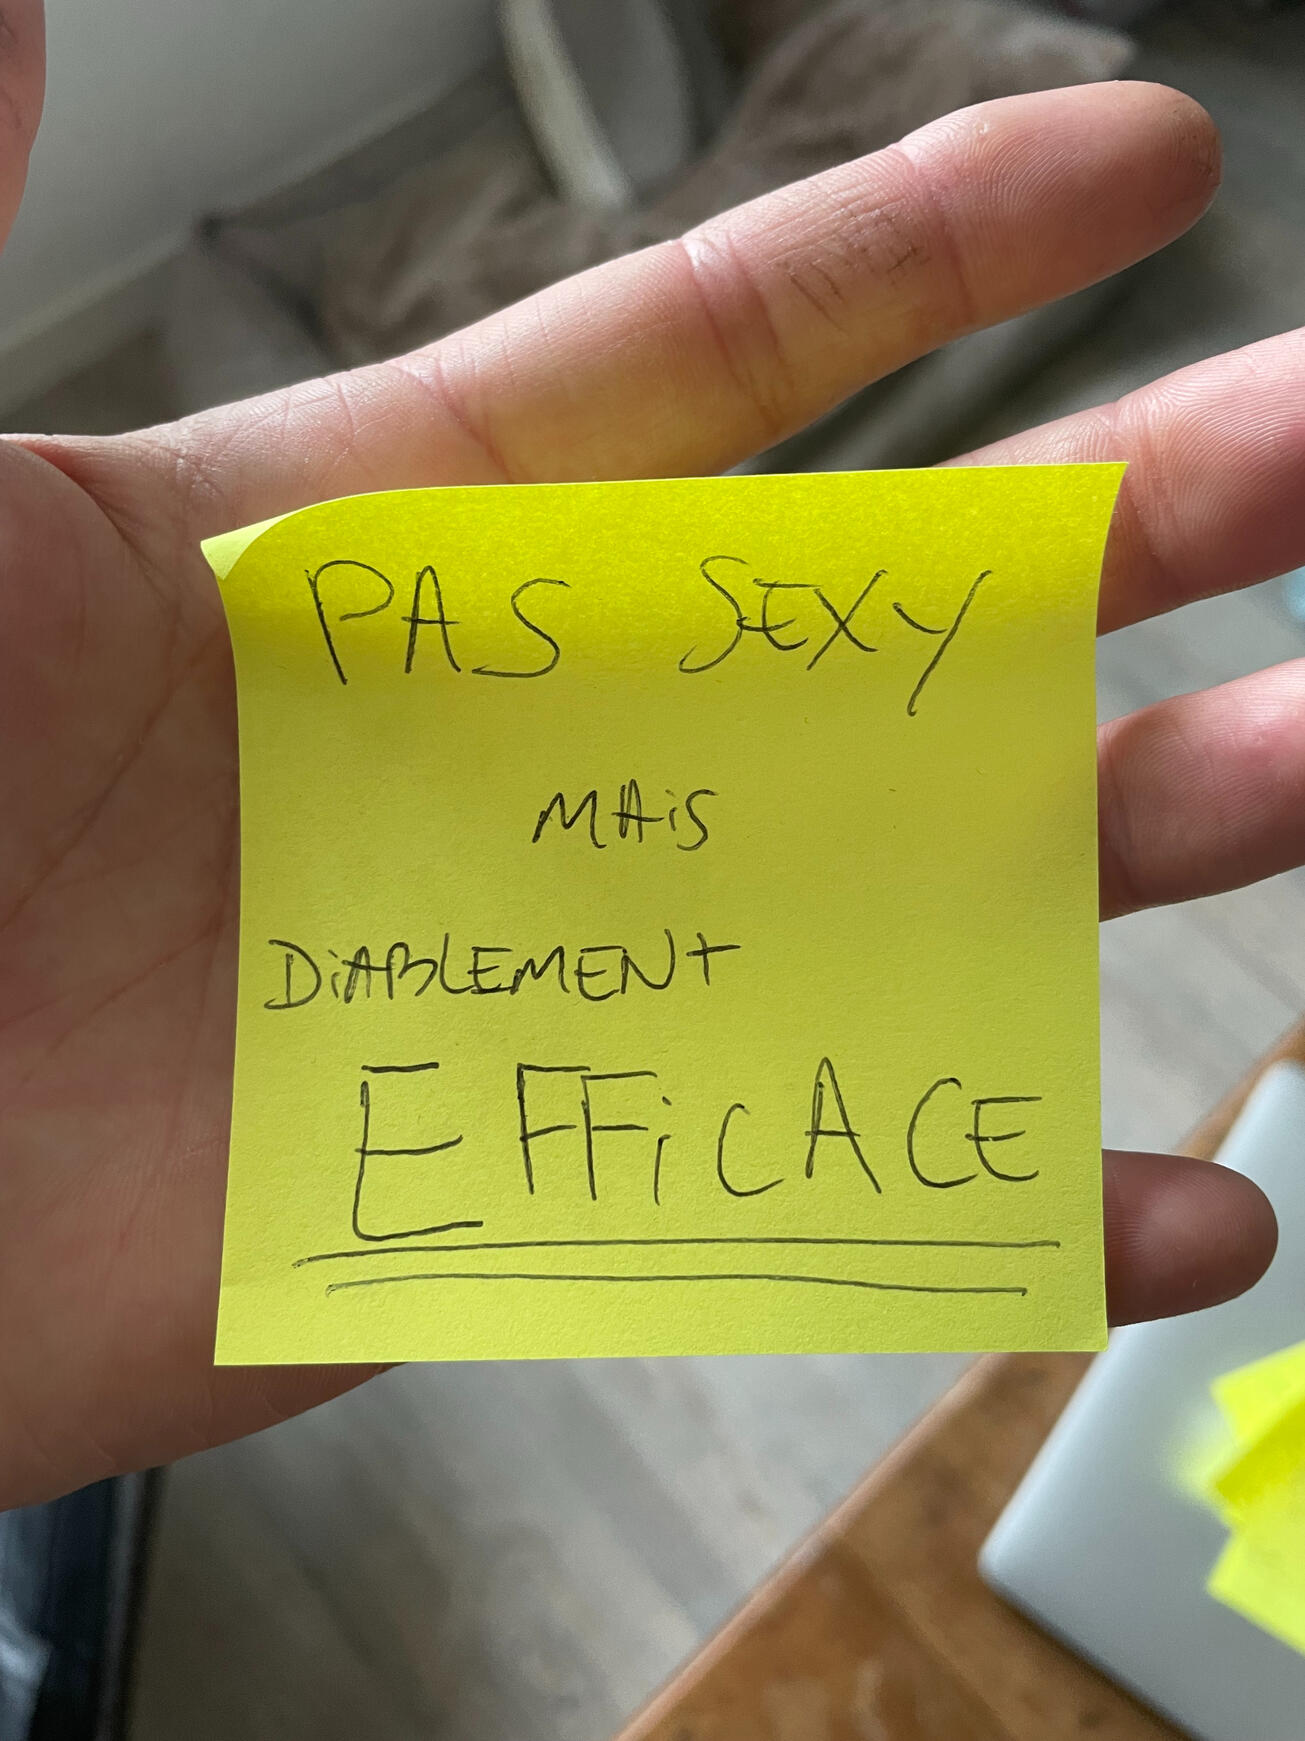 PAS SEXY
MAiS
DiABLEMENT
EFFiCACE